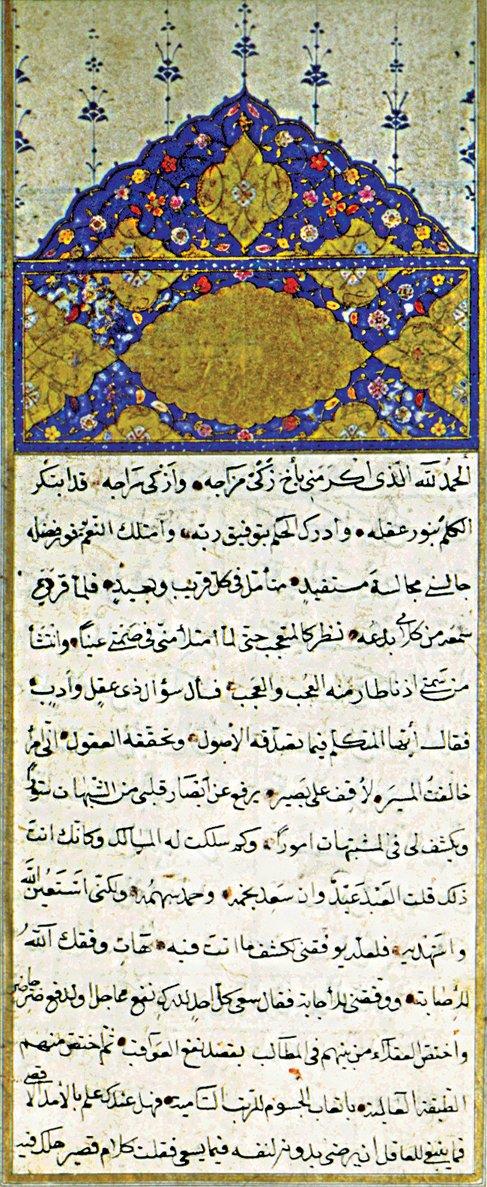 الحمد لله الذى اكرمنى بأخ زكى مزاجه وأذكى سراجه قد ابتكر
الكلم بنور عقله وأدرك الحكم بتوفيق ربه وامتلك النعم بفور فضله
جالسنى مجالسة مستفيد متأمل فى كل قريب وبعيد فلما قرع
سمعه من كلامى بدعه نظر كالمتعجب حتى لما امتلأ منى فى صمته عيناً وانتشأ
من سمتى اذنا طار منه العجب والعجب فسأل سؤال ذى عقل وأدب
فقال أيها المتكلم فيما تصدقه الأصول وتحققه العقول انى امرؤ
خالفت المسير لأقف على بصير يرفع عن أبصار قلبى من الشبهات ستوراً
ويكشف لى فى المشتبهات اموراً وكم سلكت له المسالك وكأنك انت
ذلك قلت العبد عبد وان سعد بجده وحمد بهمه ولكنى أستعين الله
واستهديه فلعله يوفقنى لكشف ما انت فيه هات وفقك الله
للأصابة ووفقنى للأجابة فقال سعى كل احد لدرك نفع عاجل او لدفع ضر حاضر
واختص العقلاء من بينهم فى المطالب بقصد نفع العواقب ثم اختص منهم
الطبقة العالية باتعاب الجسوم للرتب السامية فهل عندك علم بالأمد الأقصى
فما ينبغى للعاقل ان يرضى بدونه لنفسه فيما يسعى فقلت كلام قصير حلك فيه